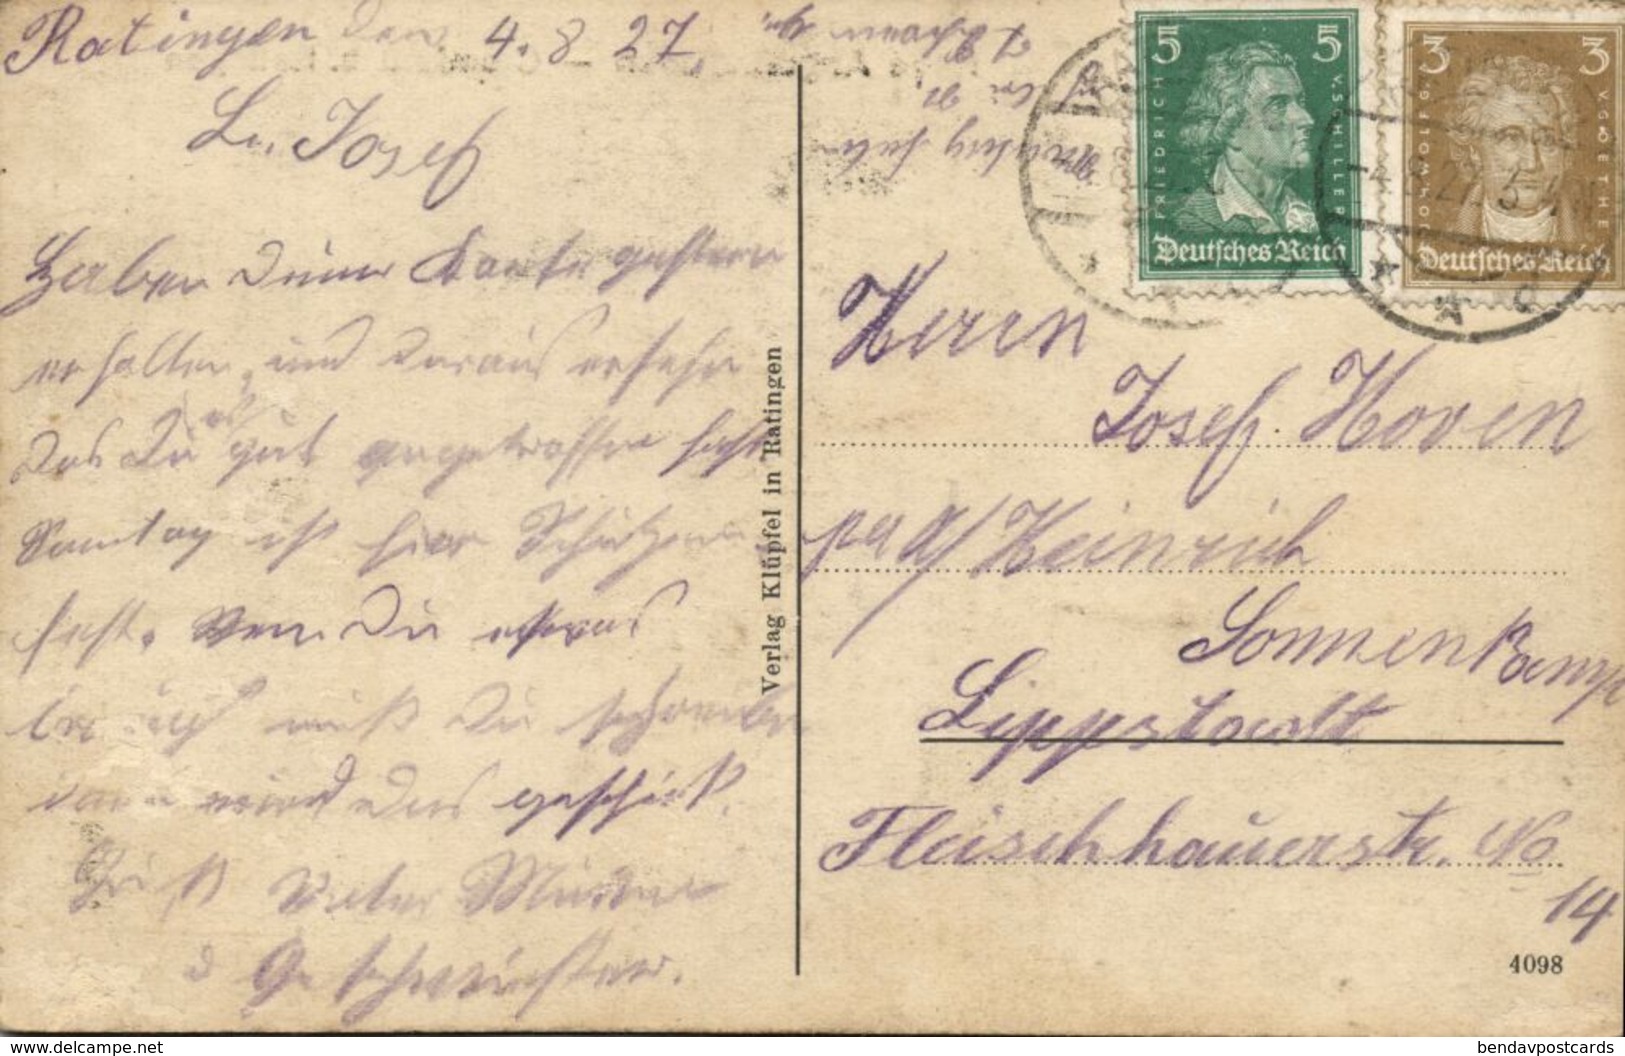 Ratingen den 4. 8 27.
L. Josef
Haben Deine Karte gestern
erhalten, und daraus ersehn
das Du es gut angetroffen hast
Sonntag ist hier Schützen
fest. Wen Du etwas
brauchst mußt Du schreiben
dann wird das geschikt.
Gruß Vater Mutter
u Geschwister.
Verlag Klüpfel in Ratingen
5 5
FRIEDRICH V. SCHILLER
Deutsches Reich
3 3
JOH. WOLFG. V. GOETHE
Deutsches Reich
-4.8.27. 5
Herrn
Josef Hoven
per A/ Heinrich
Sonnenkamp
Lippstadt
Fleischhauerstr. No
14
4098
delcampe.net
bendavpostcards